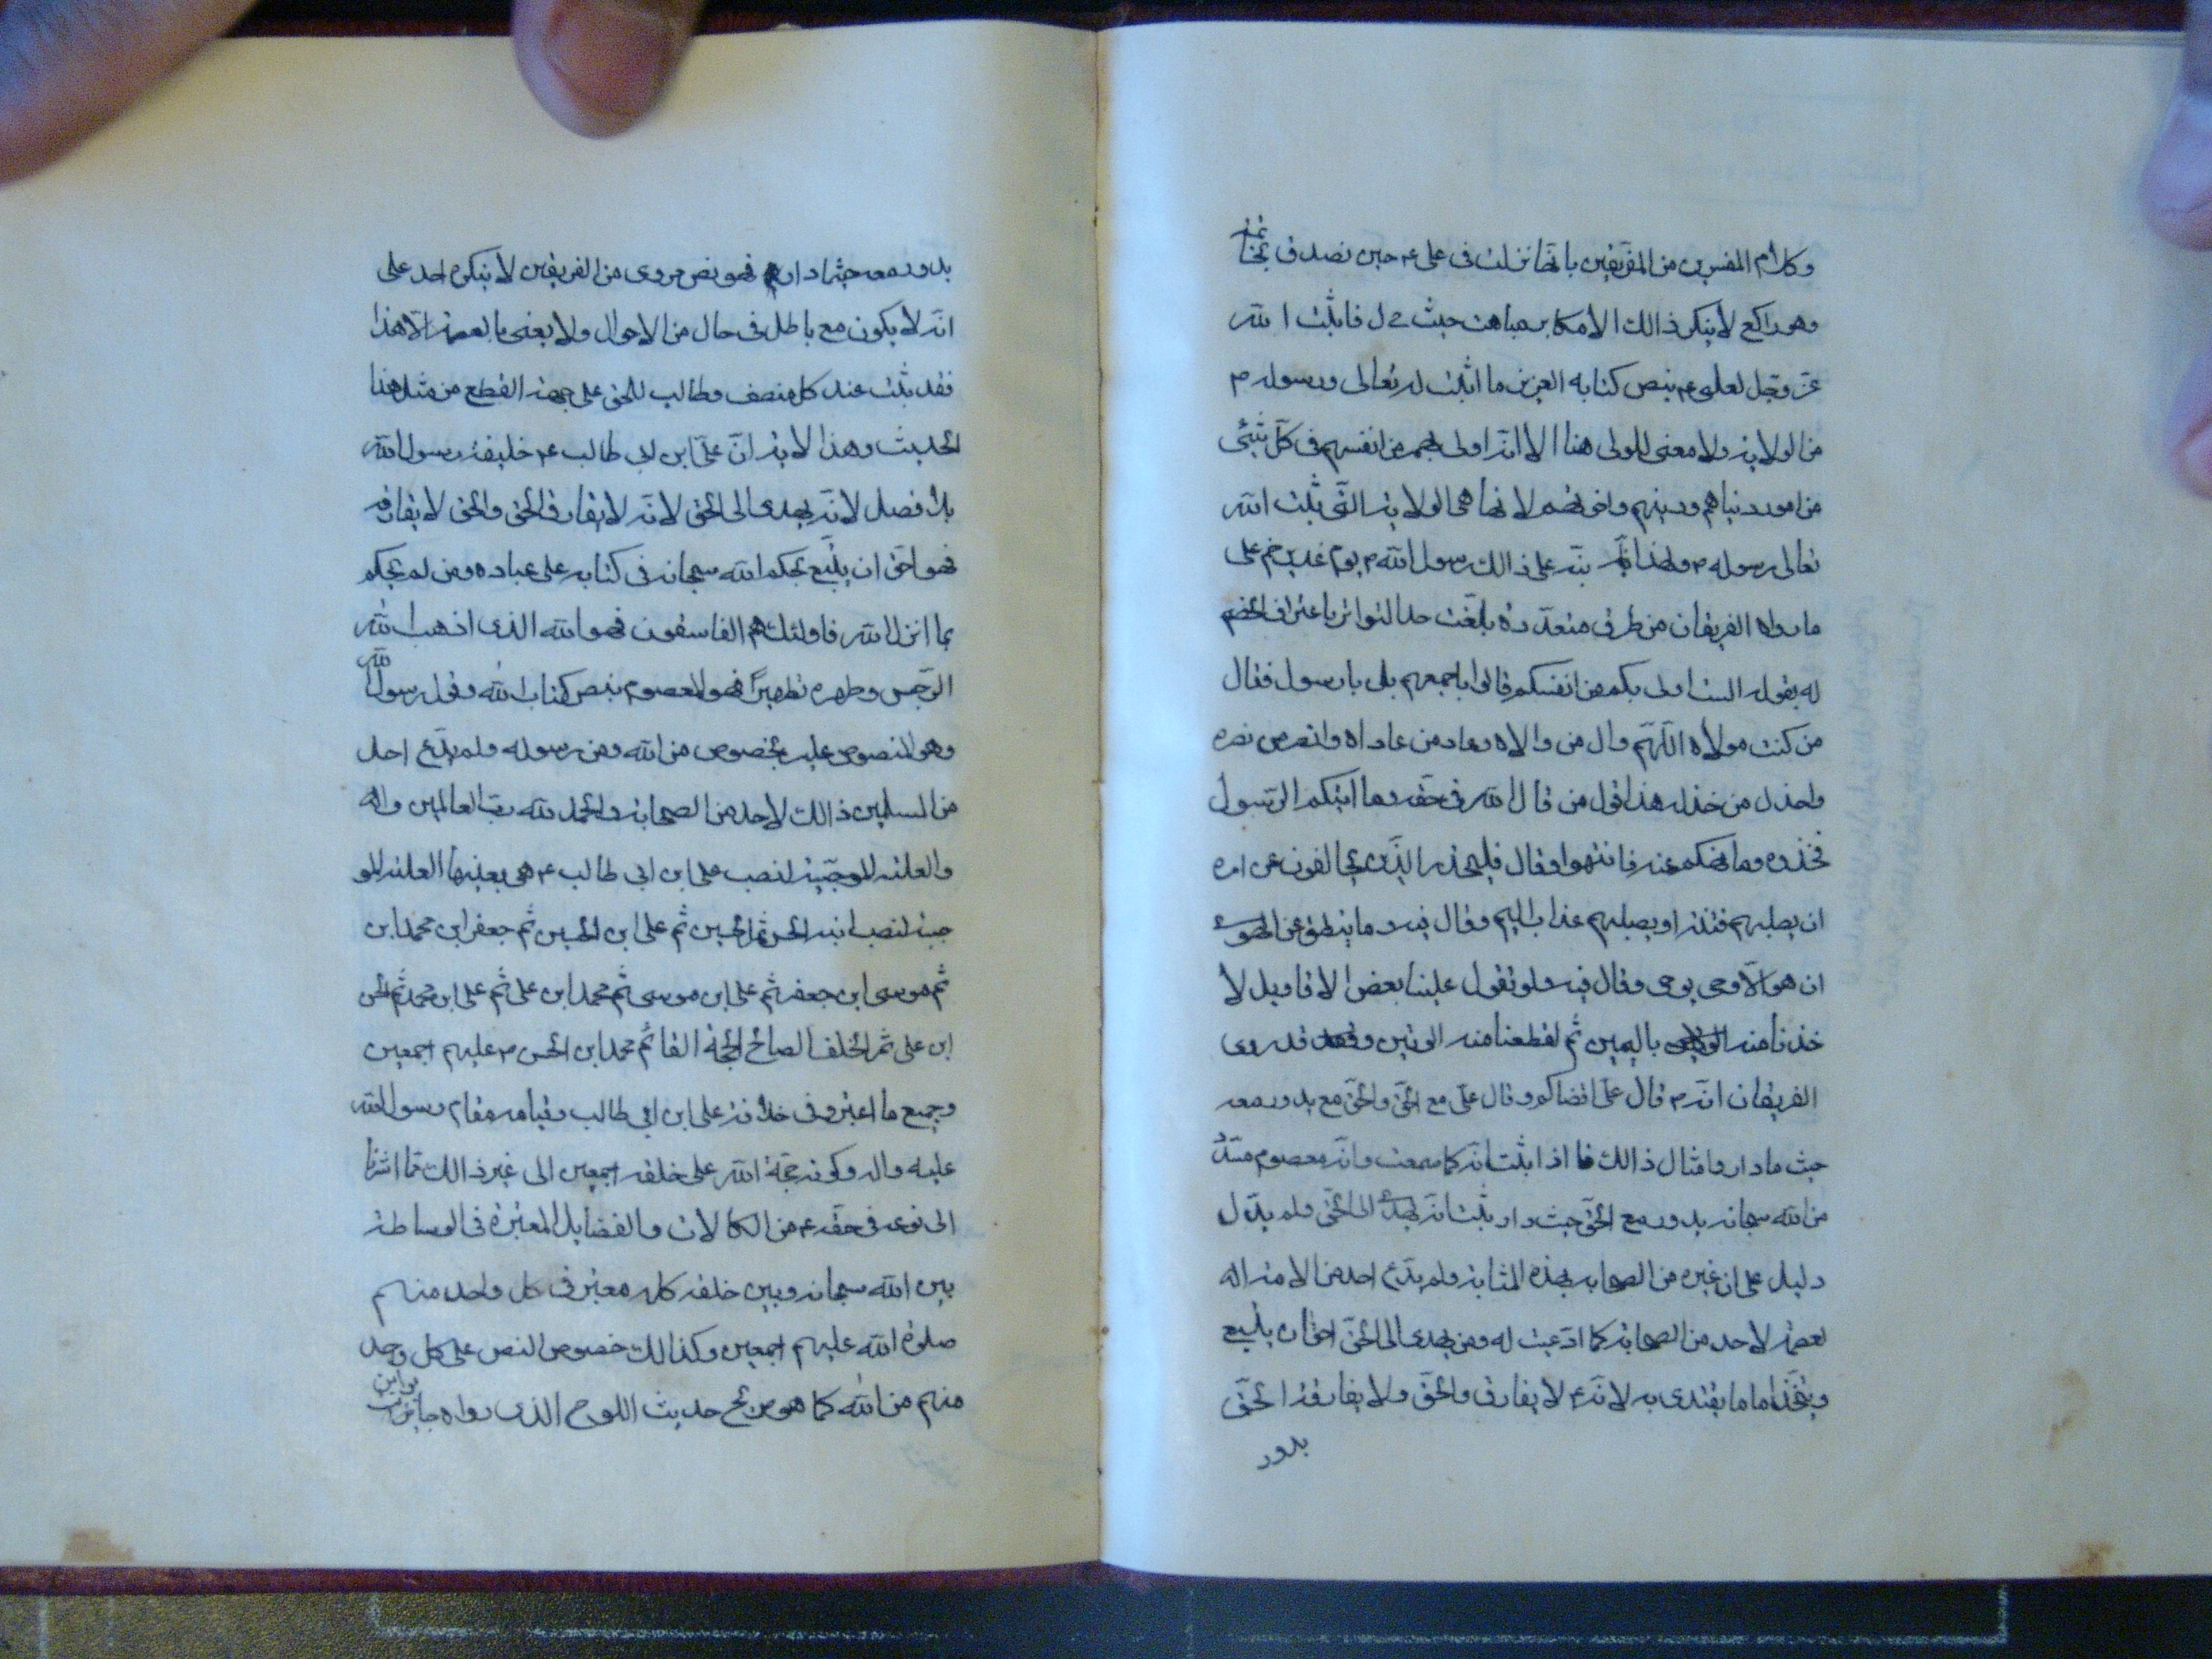 وكلام المفسرين من الفريقين بانها نزلت في علي ع حين تصدق بخاتمه
وهو راكع لا ينكر ذالك الا مكابر مباهت حيث فاثبت الله
عز وجل لعلي ع بنص كتابه العزيز ما اثبت له تعالى ورسوله ص
من الولاية ولا معنى للولي هنا الا انه اولى بهم من انفسهم في كل شئ
من امور دنياهم ودينهم واخرتهم لانها هي الولاية التي ثبت الله
تعالى رسوله ص ولهذا نبه على ذالك رسول الله ص يوم غدير خم على
ما رواه الفريقان من طرق متعددة بلغت حد التواتر باعتراف الخصم
له بقوله الست اولى بكم من انفسكم قالوا باجمعهم بلى يا رسول فقال
من كنت مولاه اللهم وال من والاه وعاد من عاداه وانصر من نصره
واخذل من خذله هذا قول من قال الله في حقه وما اتيكم الرسول
فخذوه وما نهيكم عنه فانتهوا وقال فليحذر الذين يخالفون عن امره
ان يصيبهم فتنة او يصيبهم عذاب اليم وقال فيه وما ينطق عن الهوى
ان هو الا وحي يوحى وقال فيه ولو تقول علينا بعض الاقاويل لا
خذنا منه باليمين ثم لقطعنا منه الوتين وقد روى
الفريقان انه ص قال علي اقضاكم وقال علي مع الحق والحق مع يدور معه
حيث ما دار وامثال ذالك فاذا ثبت انه كما سمعت وانه معصوم مسدد
من الله سبحانه يدور مع الحق حيث دار ثبت انه يهدي الى الحق ولم يدل
دليل على ان غيره من الصحابه بهذه المثابة ولم يدع احد من الامة اله
لعصمة لاحد من الصحابة كما ادعيت له ومن يهدي الى الحق احق ان يتبع
ويتخذ اماما يقتدى به لانه ع لا يفارق والحق ولا يفارقه الحق
يدور
يدور معه حيثما دار فهو نص مروي من الفريقين لا ينكره احد على
انه لا يكون مع باطل في حال من الاحوال ولا يعنى بالعصمة الا هذا
فقد ثبت عند كل منصف وطالب للحق على جهة القطع من مثل هذا
الحديث وهذا الاية ان علي ابن ابي طالب ع خليفة رسول الله
بلا فصل لانه يهدي الى الحق لانه لا يفارق الحق والحق لا يفارقه
فهو احق ان يتبع بحكم الله سبحانه في كتابه على عباده ومن لم يحكم
بما انزل الله فاولئك هم الفاسقون فهو الله الذي اذهب الله
الرجس وطهره تطهيراً فهو المعصوم بنص كتاب الله وقول رسول الله
وهو المنصوص عليه بخصوص من الله ومن رسوله ولم يدع احد
من المسلمين ذالك لاحد من الصحابة والحمد لله رب العالمين واله
والعلة الموجبة لنصب علي ابن ابي طالب ع هي بعينها العلة المو
جبة لنصب ابنه الحسن ثم الحسين ثم علي ابن الحسين ثم جعفر ابن محمد ابن
ثم موسى ابن جعفر ثم علي ابن موسى ثم محمد ابن علي ثم علي ابن محمد ثم الحسن
ابن علي ثم الخلف الصالح الحجة القائم محمد ابن الحسن ص عليهم اجمعين
وجميع ما اعتبر في خلافة علي ابن ابي طالب وقيامه مقام رسول الله
عليه واله وكونه حجة الله على خلقه اجمعين الى غير ذالك مما اشرنا
الى نوعه في حقه ع من الكمالات والفضايل المعتبرة في الوساطة
بين الله سبحانه وبين خلقه كله معتبر في كل واحد منهم
صلوة الله عليهم اجمعين وكذالك خصوص النص على كل واحد
منهم من الله كما هو صريح حديث اللوح الذي رواه جابر